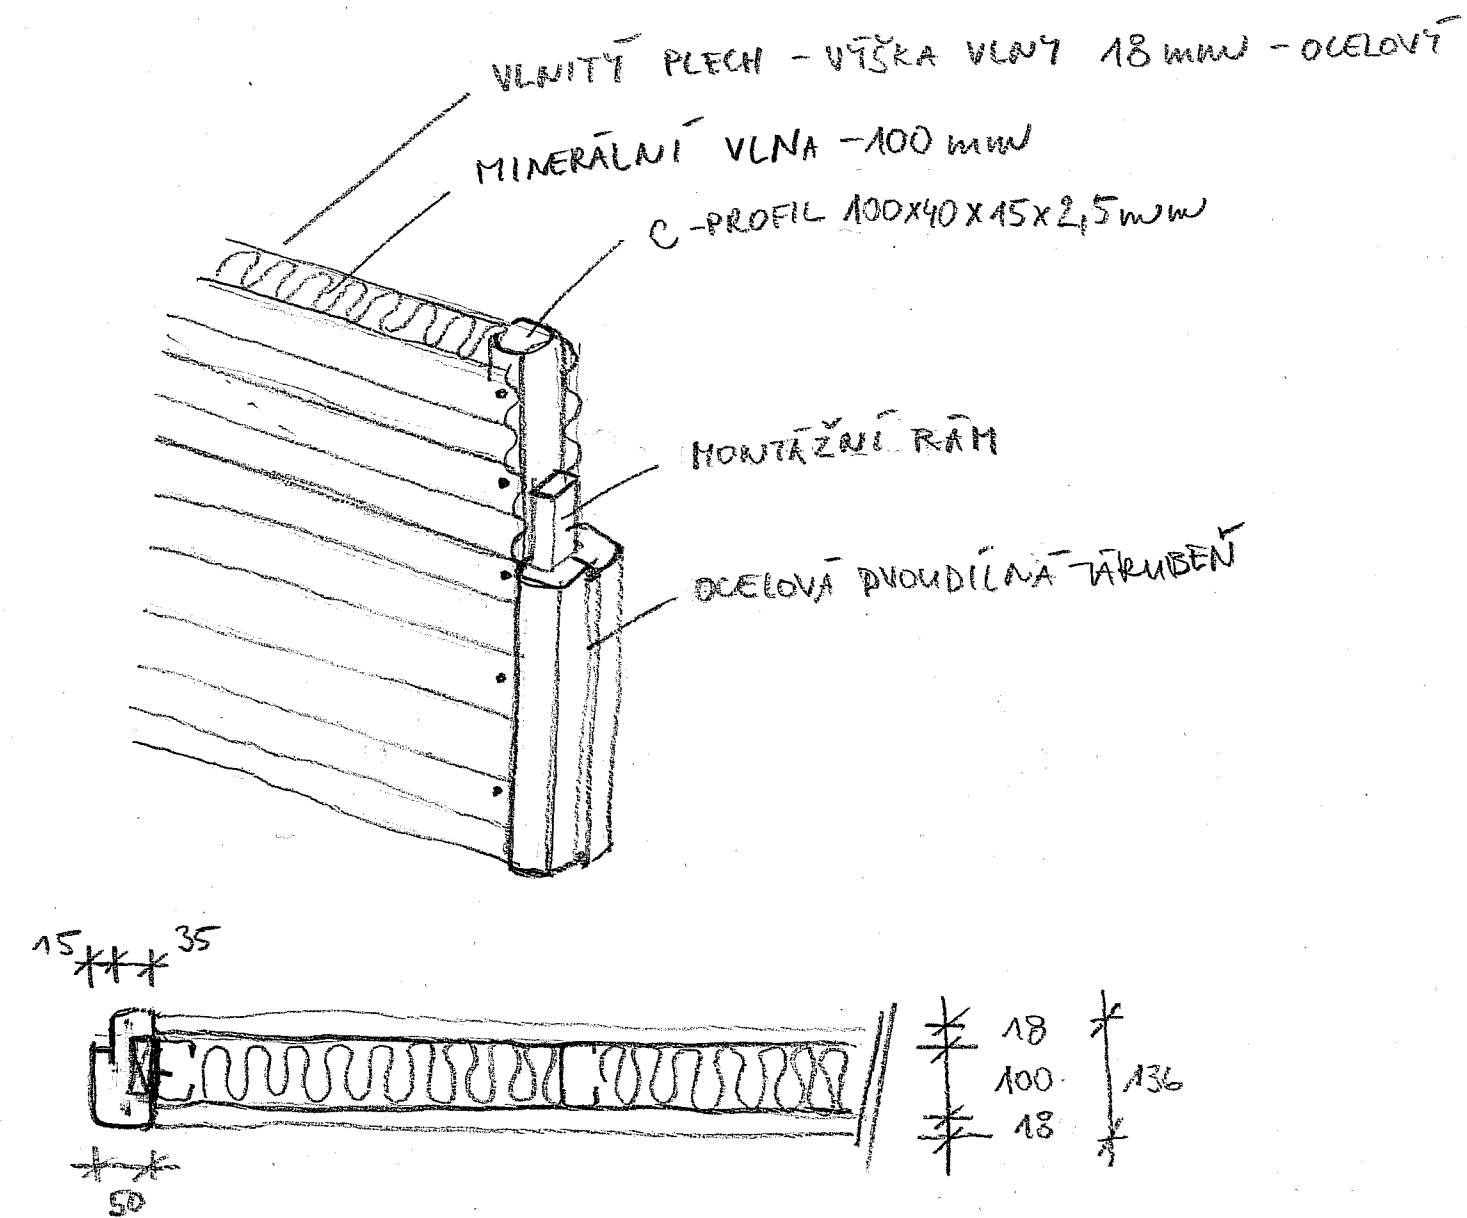 VLNITÝ PLECH - VÝŠKA VLNY 18mm - OCELOVÝ
MINERÁLNÍ VLNA -100 mm
C-PROFIL 100x40x15x2,5mm
MONTÁŽNÍ RÁM
OCELOVÁ DVOUDÍLNÁ ZÁRUBEŇ
15 35
18
100
18
136
50